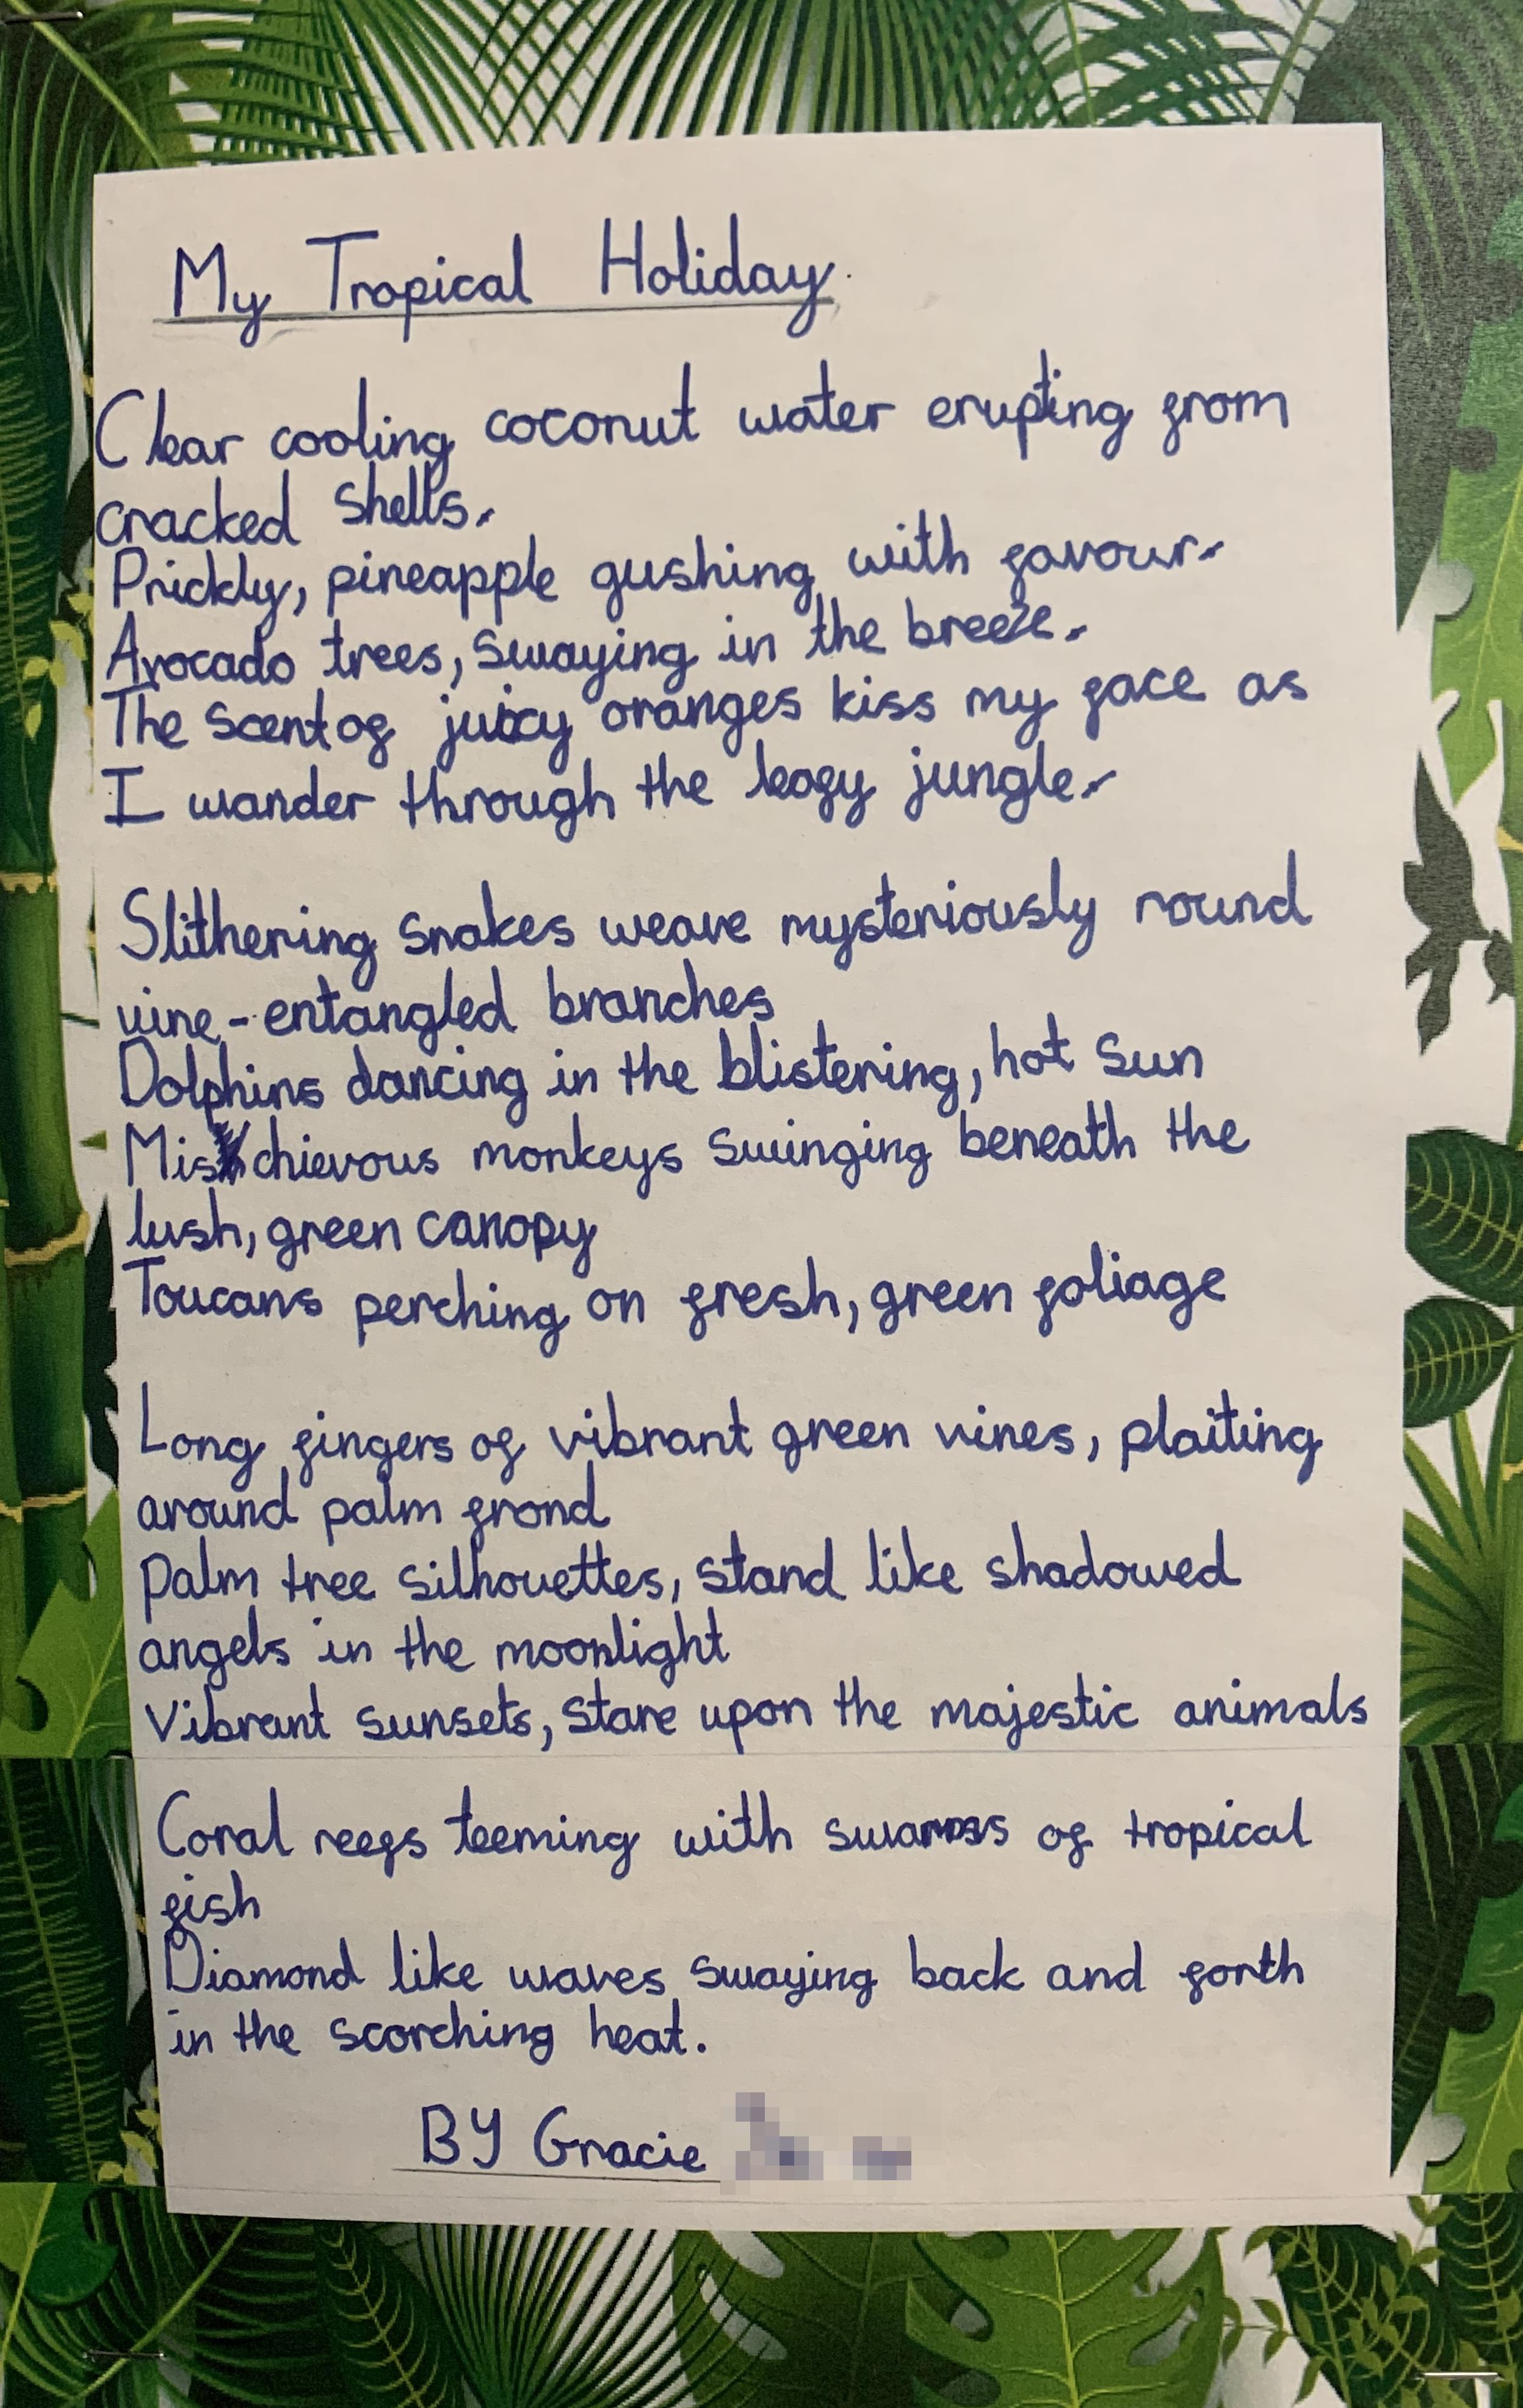 My Tropical Holiday.
Clear cooling coconut water erupting from
cracked shells.
Prickly, pineapple gushing with favour.
Avocado trees, swaying in the breeze.
The scent of juicy oranges kiss my face as
I wander through the leafy jungle.
Slithering snakes weave mysteriously round
vine-entangled branches
Dolphins dancing in the blistering, hot sun
Mischievous monkeys swinging beneath the
lush, green canopy
Toucans perching on fresh, green foliage
Long fingers of vibrant green vines, plaiting
around palm frond
Palm tree silhouettes, stand like shadowed
angels in the moonlight
Vibrant sunsets, stare upon the majestic animals
Coral reefs teeming with swarms of tropical
fish
Diamond like waves swaying back and forth
in the scorching heat.
BY Gracie